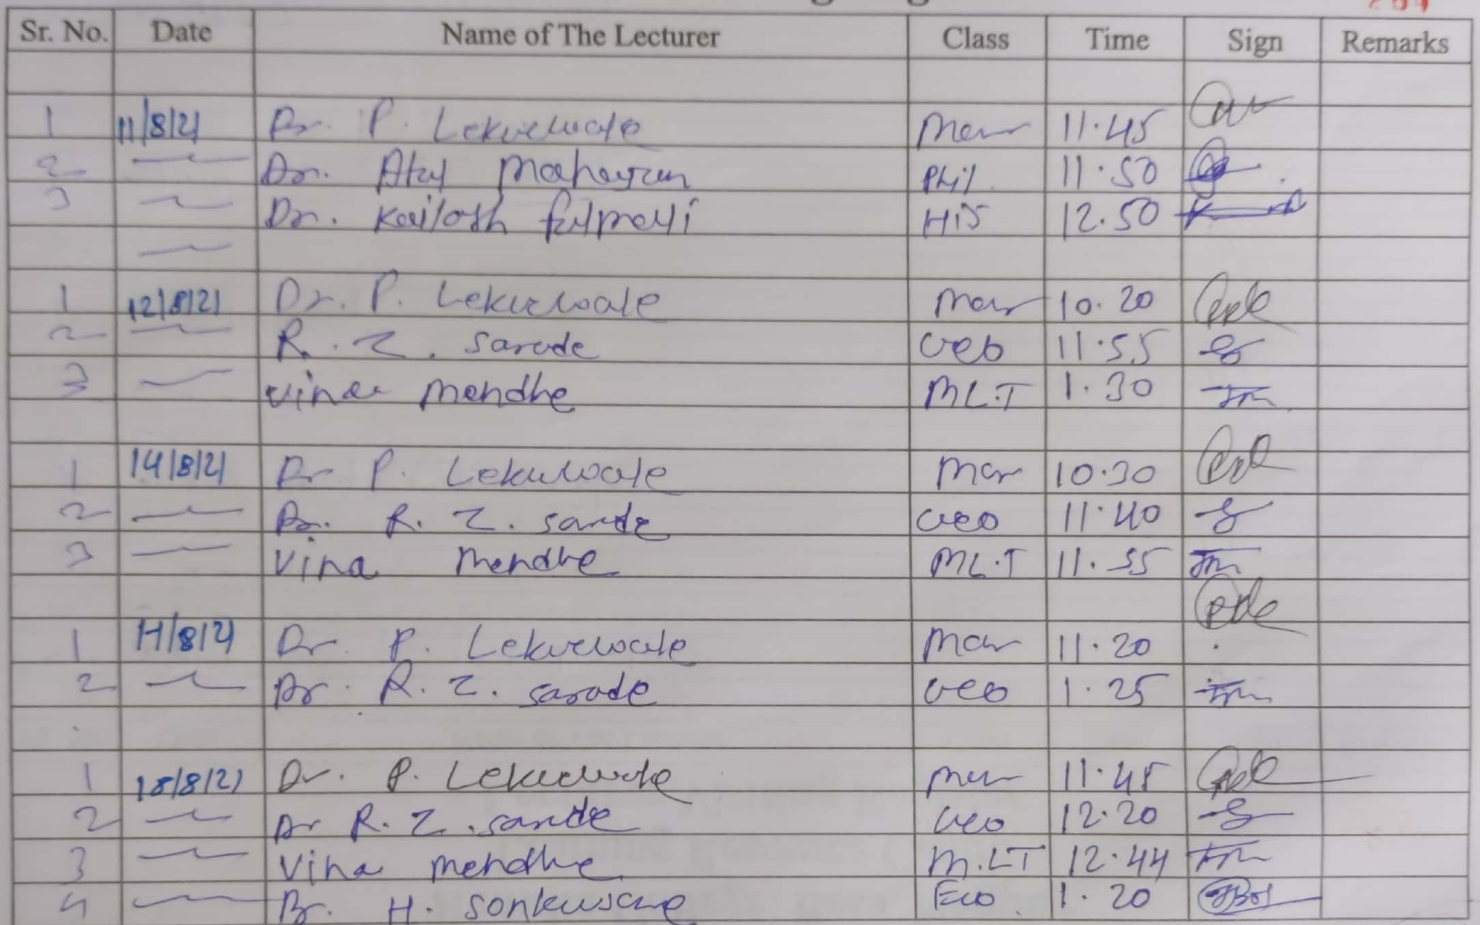 Sr. No. Date Name of The Lecturer Class Time Sign Remarks
1 11/8/21 Dr. P. Lekurwale Mar 11.45
2 Dr. Atul Mahajan Phil. 11.50
3 Dr. Kailash fulmali HiS 12.50
1 12/8/21 Dr. P. Lekurwale Mar 10.20
2 R. Z. Sarode Geo 11.55
3 Vina Mendhe MLT 1.30
1 14/8/21 Dr P. Lekurwale Mar 10.30
2 Dr. R. Z. Sarode Geo 11.40
3 Vina Mendhe ML.T 11.55
1 Dr. P. Lekurwale Mar 11.20
2 Dr. R. Z. Sarode Geo 1.25
1 18/8/21 Dr. P. Lekurwale Mar 11.45
2 Dr R. Z. Sarode Geo 12.20
3 Vina Mendhe M.LT 12.44
4 Dr. H. Sonkusare Eco 1.20